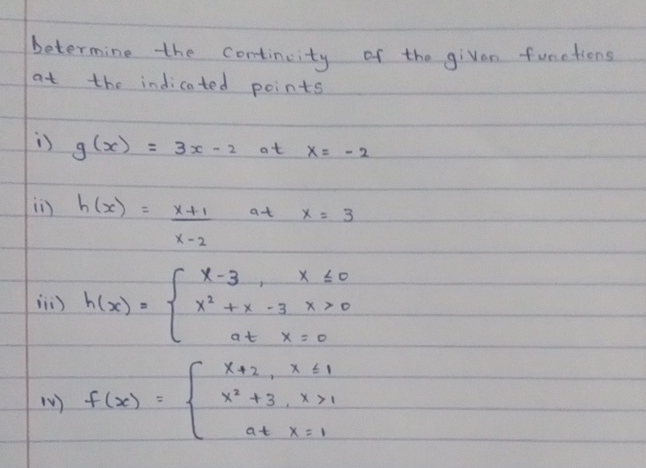 Determine the continuity of the given functions
at the indicated points
i) g(x) = 3x - 2 at x = -2
ii) h(x) = x+1 / x-2 at x = 3
iii) h(x) = { x-3 , x ≤ 0
x² + x - 3 x > 0
at x = 0
iv) f(x) = { x+2 , x ≤ 1
x² + 3 , x > 1
at x = 1